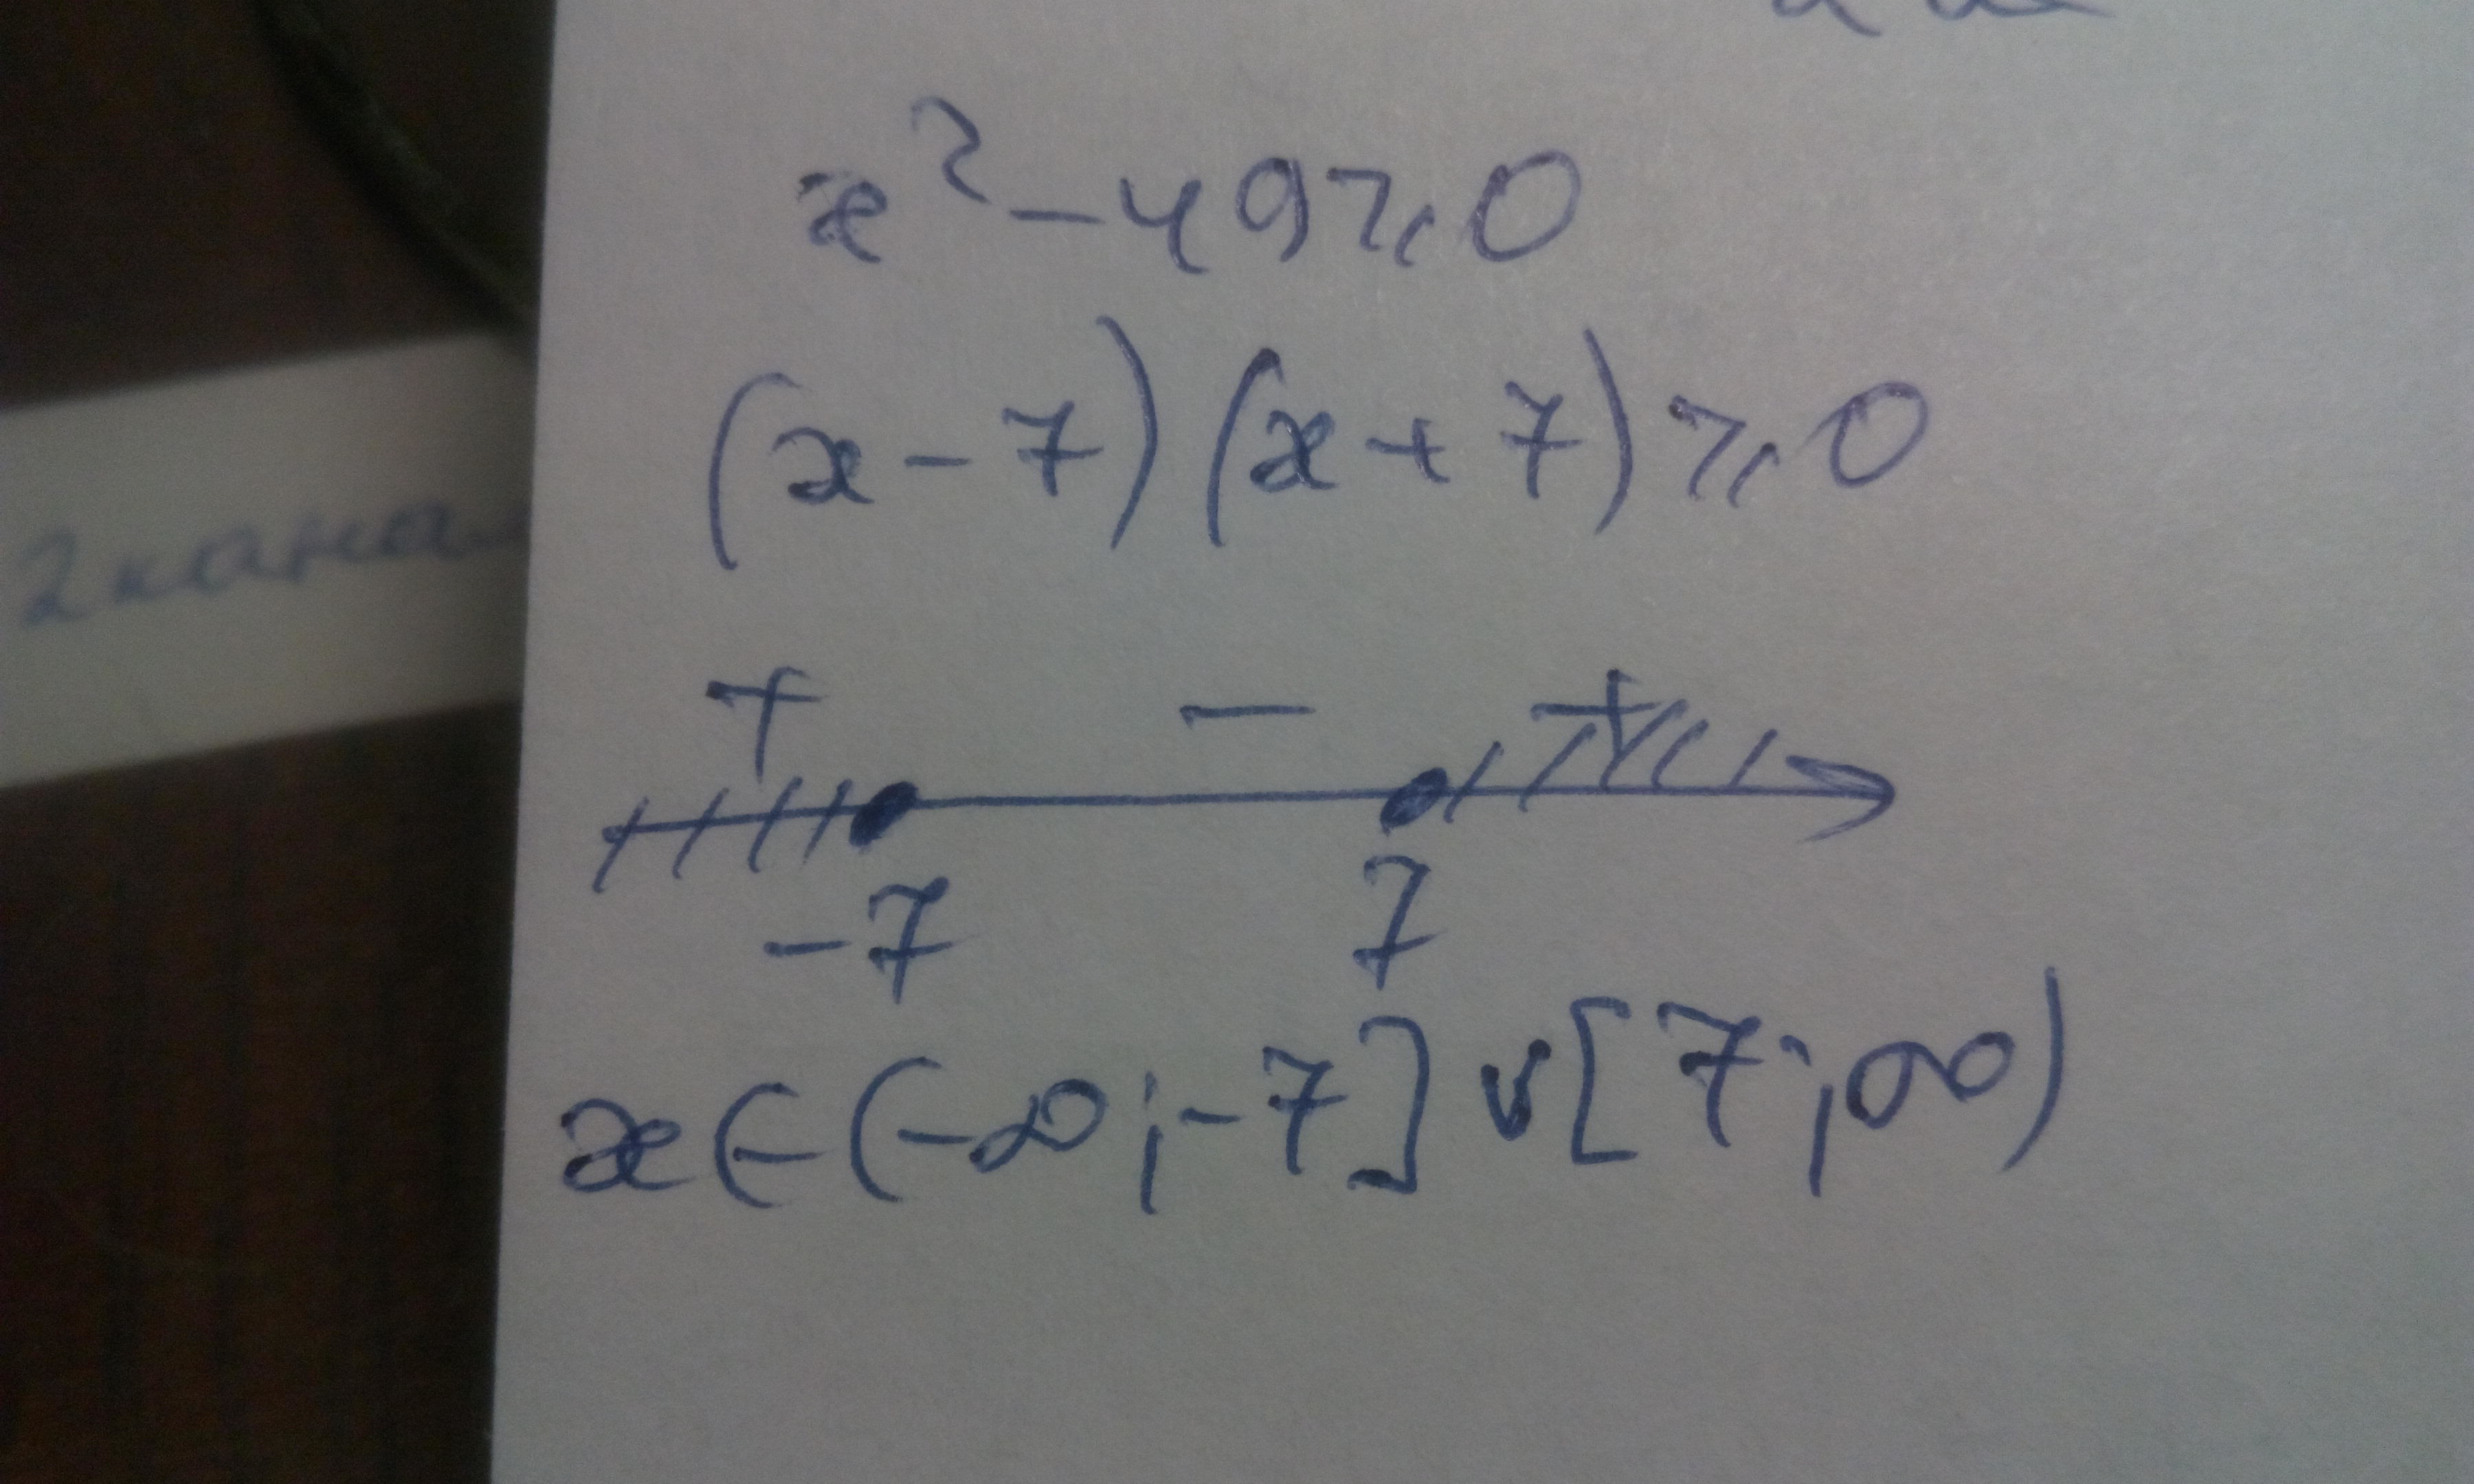 x² - 49 ⩾ 0
(x - 7)(x + 7) ⩾ 0
+ - +
-7 7
x ∈ (-∞; -7] ∪ [7; ∞)
2 канал